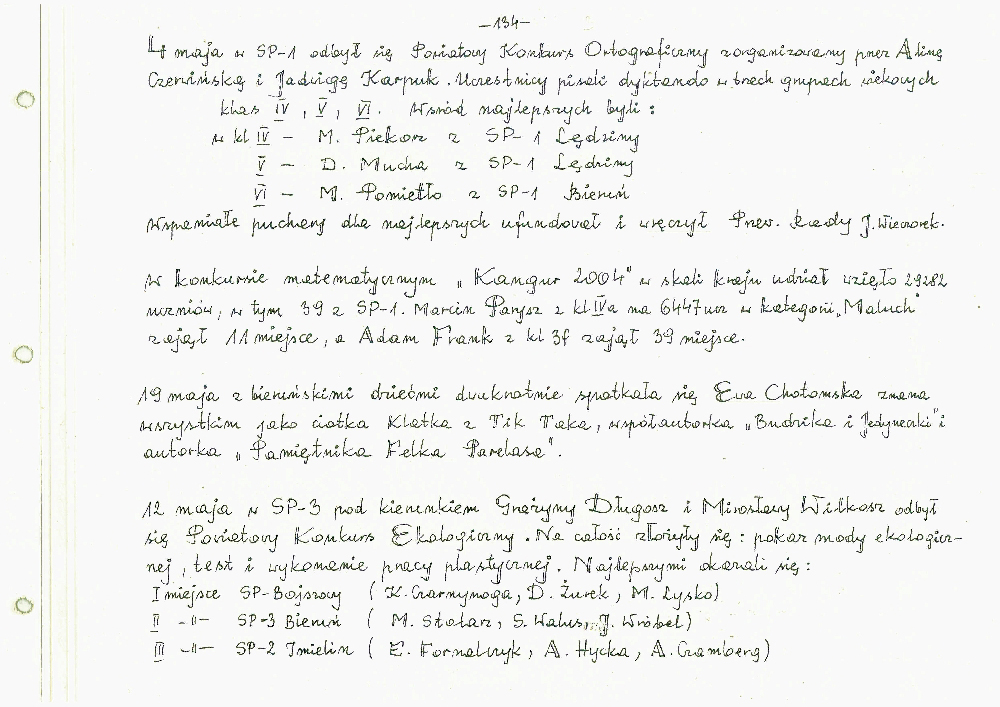 -134-
4 maja w SP-1 odbył się Powiatowy Konkurs Ortograficzny zorganizowany przez Alinę
Czerwińską i Jadwigę Karpuk. Uczestnicy pisali dyktando w trzech grupach wiekowych
klas IV, V, VI. Wśród najlepszych byli:
w kl IV - M. Piekorz z SP-1 Lędziny
V - D. Mucha z SP-1 Lędziny
VI - M. Pomietło z SP-1 Bieruń
Wspaniałe puchary dla najlepszych ufundował i wręczył Przew. Rady J. Wieczorek.
W konkursie matematycznym „Kangur 2004" w skali kraju udział wzięło 29282
uczniów, w tym 39 z SP-1. Marcin Parysz z kl IVa na 6447 ucz w kategorii „Maluch"
zajął 11 miejsce, a Adam Frank z kl 3f zajął 39 miejsce.
19 maja z bieruńskimi dziećmi dwukrotnie spotkała się Ewa Chotomska znana
wszystkim jako ciotka Klotka z Tik Taka, współautorka „Budzika i Jedyneczki" i
autorka „Pamiętnika Felka Parelasa".
12 maja w SP-3 pod kierunkiem Grażyny Długosz i Mirosławy Wilkosz odbył
się Powiatowy Konkurs Ekologiczny. Na całość złożyły się: pokaz mody ekologicz-
nej, test i wykonanie pracy plastycznej. Najlepszymi okazali się:
I miejsce SP-Bojszowy (K. Czarnynoga, D. Żurek, M. Lysko)
II -"- SP-3 Bieruń (M. Stolarz, S. Walus, J. Wróbel)
III -"- SP-2 Imielin (E. Fornalczyk, A. Hycka, A. Cramberg)